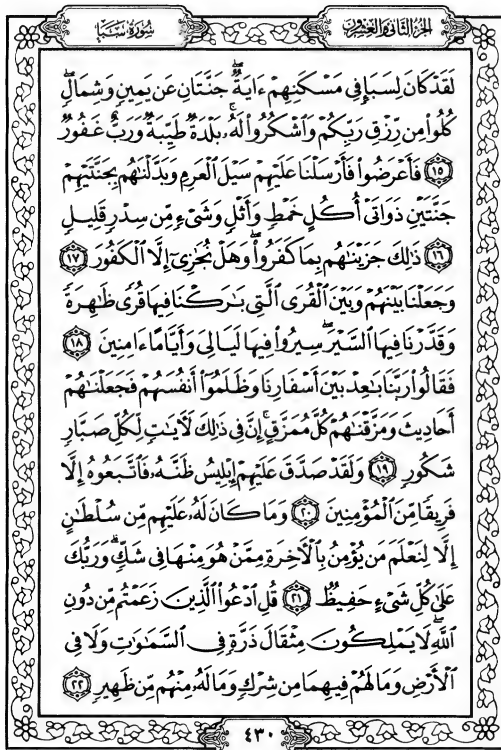 الجزء الثاني والعشرون
سورة سبإ
لَقَدْ كَانَ لِسَبَإٍ فِي مَسْكَنِهِمْ ءَايَةٌ ۖ جَنَّتَانِ عَن يَمِينٍ وَشِمَالٍ ۖ
كُلُوا۟ مِن رِّزْقِ رَبِّكُمْ وَٱشْكُرُوا۟ لَهُۥ ۚ بَلْدَةٌ طَيِّبَةٌ وَرَبٌّ غَفُورٌ
١٥ فَأَعْرَضُوا۟ فَأَرْسَلْنَا عَلَيْهِمْ سَيْلَ ٱلْعَرِمِ وَبَدَّلْنَٰهُم بِجَنَّتَيْهِمْ
جَنَّتَيْنِ ذَوَاتَىْ أُكُلٍ خَمْطٍ وَأَثْلٍ وَشَىْءٍ مِّن سِدْرٍ قَلِيلٍ
١٦ ذَٰلِكَ جَزَيْنَٰهُم بِمَا كَفَرُوا۟ ۖ وَهَلْ نُجَٰزِىٓ إِلَّا ٱلْكَفُورَ ١٧
وَجَعَلْنَا بَيْنَهُمْ وَبَيْنَ ٱلْقُرَى ٱلَّتِى بَٰرَكْنَا فِيهَا قُرًى ظَٰهِرَةً
وَقَدَّرْنَا فِيهَا ٱلسَّيْرَ ۖ سِيرُوا۟ فِيهَا لَيَالِىَ وَأَيَّامًا ءَامِنِينَ ١٨
فَقَالُوا۟ رَبَّنَا بَٰعِدْ بَيْنَ أَسْفَارِنَا وَظَلَمُوٓا۟ أَنفُسَهُمْ فَجَعَلْنَٰهُمْ
أَحَادِيثَ وَمَزَّقْنَٰهُمْ كُلَّ مُمَزَّقٍ ۚ إِنَّ فِى ذَٰلِكَ لَءَايَٰتٍ لِّكُلِّ صَبَّارٍ
شَكُورٍ ١٩ وَلَقَدْ صَدَّقَ عَلَيْهِمْ إِبْلِيسُ ظَنَّهُۥ فَٱتَّبَعُوهُ إِلَّا
فَرِيقًا مِّنَ ٱلْمُؤْمِنِينَ ٢٠ وَمَا كَانَ لَهُۥ عَلَيْهِم مِّن سُلْطَٰنٍ
إِلَّا لِنَعْلَمَ مَن يُؤْمِنُ بِٱلْءَاخِرَةِ مِمَّنْ هُوَ مِنْهَا فِى شَكٍّ ۗ وَرَبُّكَ
عَلَىٰ كُلِّ شَىْءٍ حَفِيظٌ ٢١ قُلِ ٱدْعُوا۟ ٱلَّذِينَ زَعَمْتُم مِّن دُونِ
ٱللَّهِ ۖ لَا يَمْلِكُونَ مِثْقَالَ ذَرَّةٍ فِى ٱلسَّمَٰوَٰتِ وَلَا فِى
ٱلْأَرْضِ وَمَا لَهُمْ فِيهِمَا مِن شِرْكٍ وَمَا لَهُۥ مِنْهُم مِّن ظَهِيرٍ ٢٢
٤٣٠